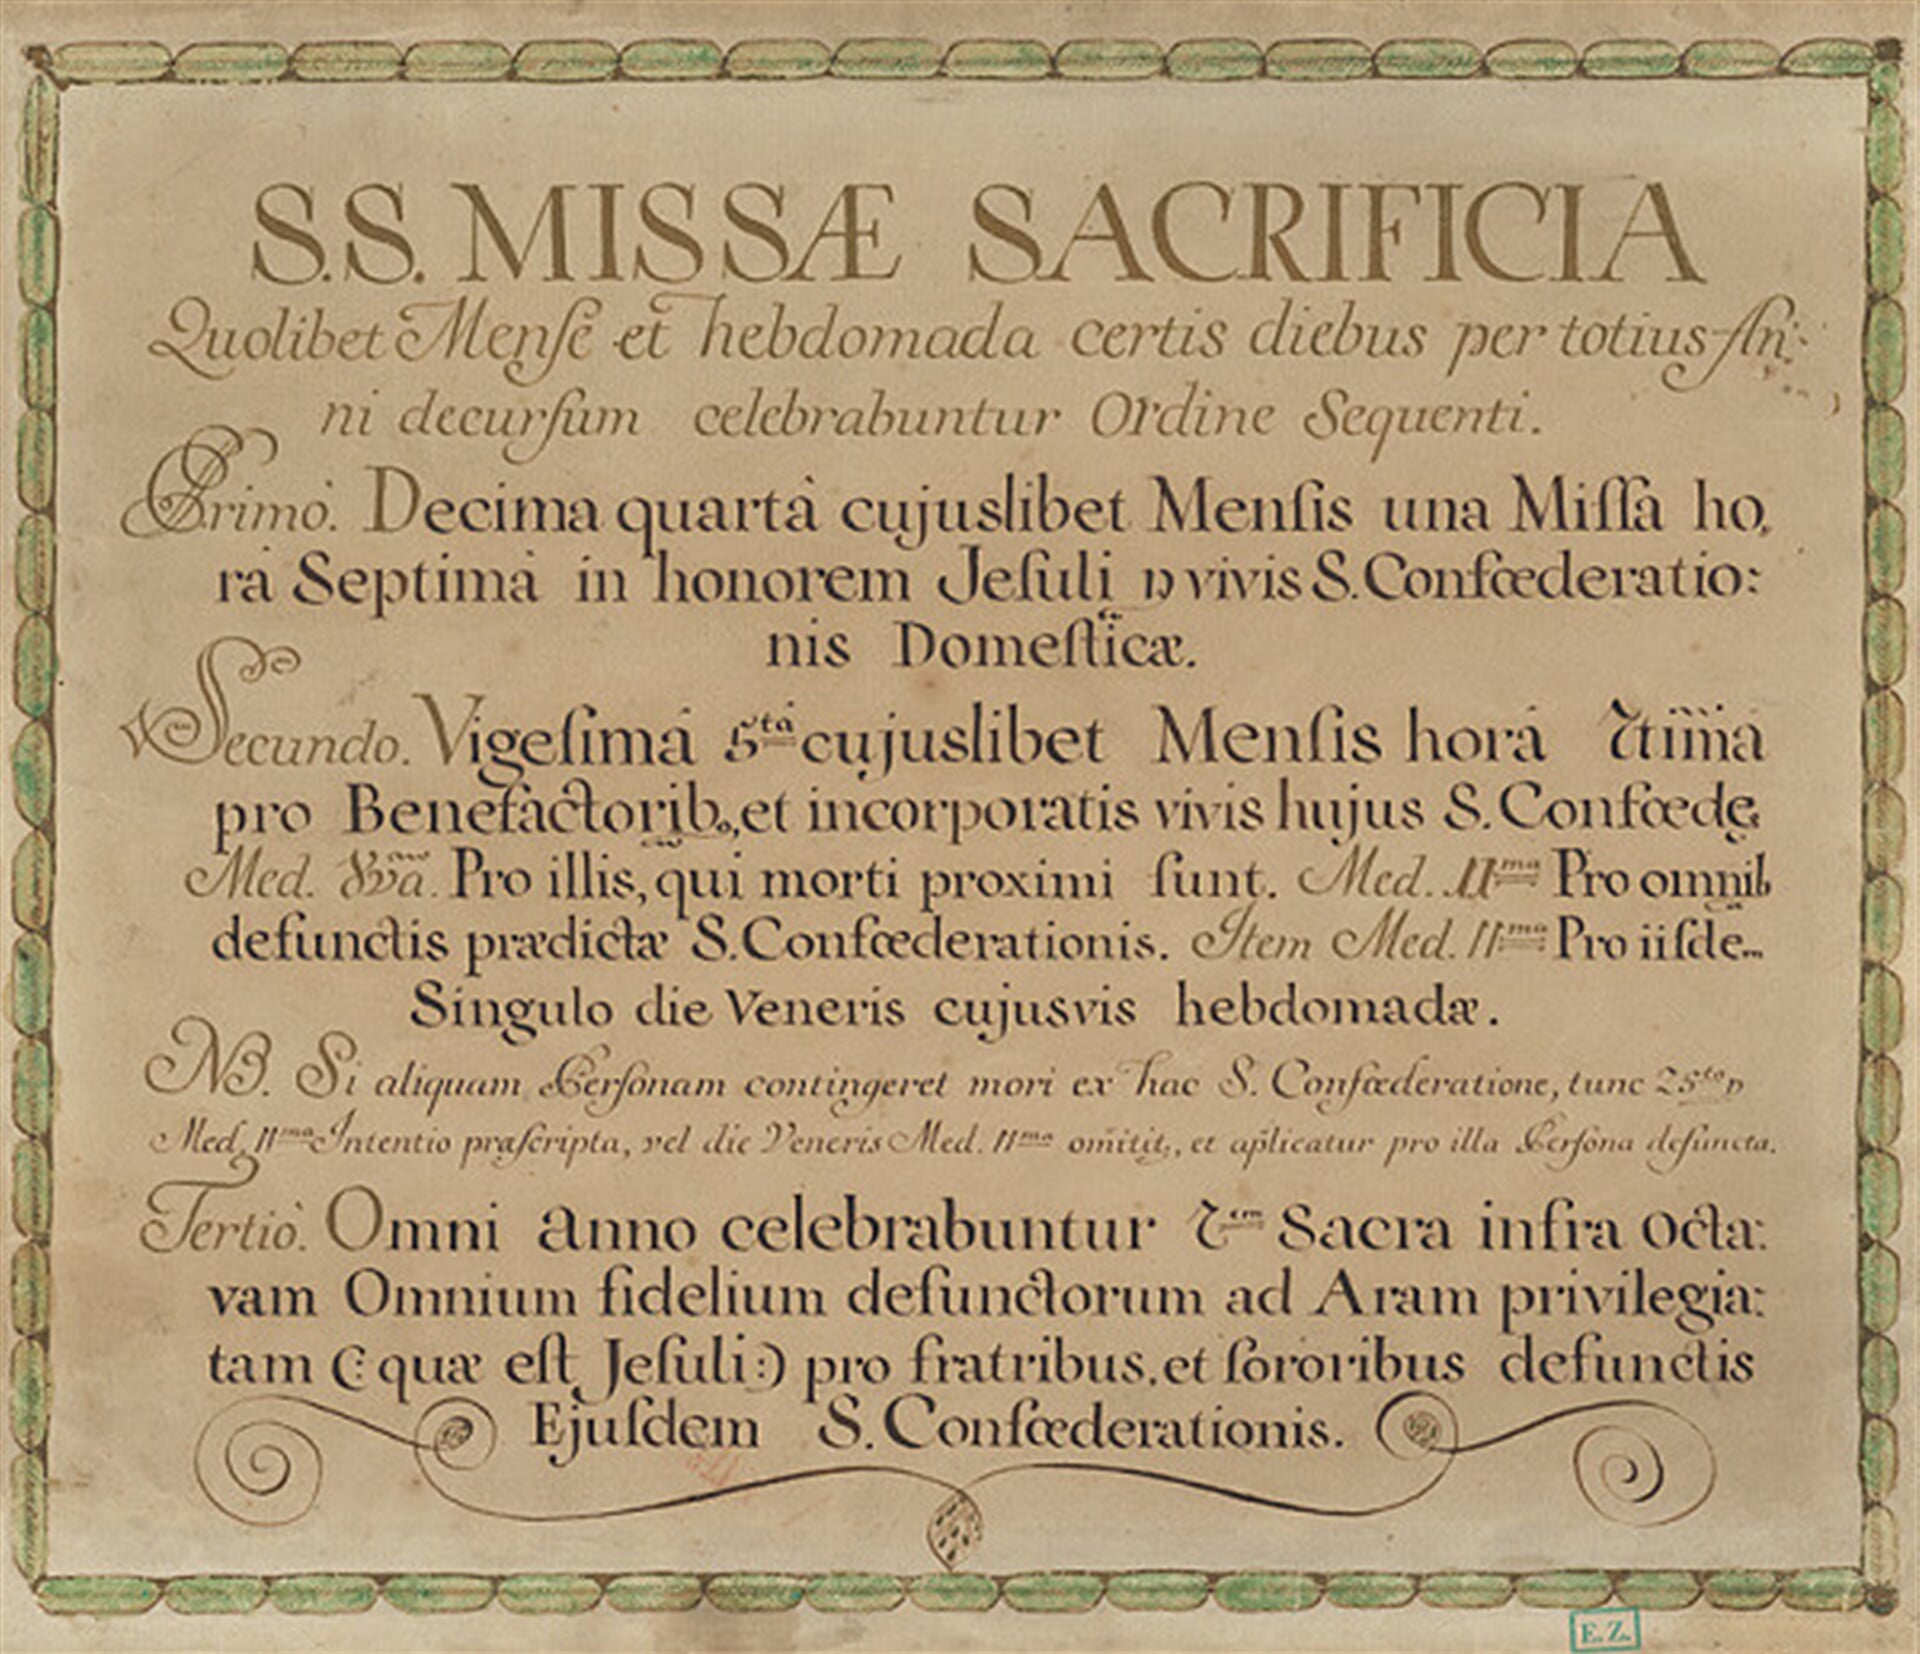 S.S. MISSÆ SACRIFICIA
Quolibet Menſe et hebdomada certis diebus per totius An:
ni decurſum celebrabuntur Ordine Sequenti.
Primò. Decima quartâ cujuslibet Menſis una Miſſa ho,
râ Septimâ in honorem Jeſuli p vivis S. Confœderatio:
nis Domeſticæ.
Secundo. Vigeſimâ 5tâ cujuslibet Menſis horâ 7timâ
pro Benefactorib, et incorporatis vivis hujus S. Confœde
Med. 8vâ. Pro illis, qui morti proximi ſunt. Med. 11ma Pro omnib
defunctis prædictæ S. Confœderationis. Item Med. 11ma Pro iiſde
Singulo die Veneris cujusvis hebdomadæ.
NB. Si aliquam Perſonam contingeret mori ex hac S. Confœderatione, tunc 25ta
Med. 11ma Intentio præſcripta, vel die Veneris Med. 11ma om̃itit, et aplicatur pro illa Perſona defuncta.
Tertiò. Omni anno celebrabuntur 7em Sacra infra Octa:
vam Omnium fidelium defunctorum ad Aram privilegia:
tam (: quæ eſt Jeſuli :) pro fratribus, et ſororibus defunctis
Ejuſdem S. Confœderationis.
E.Z.